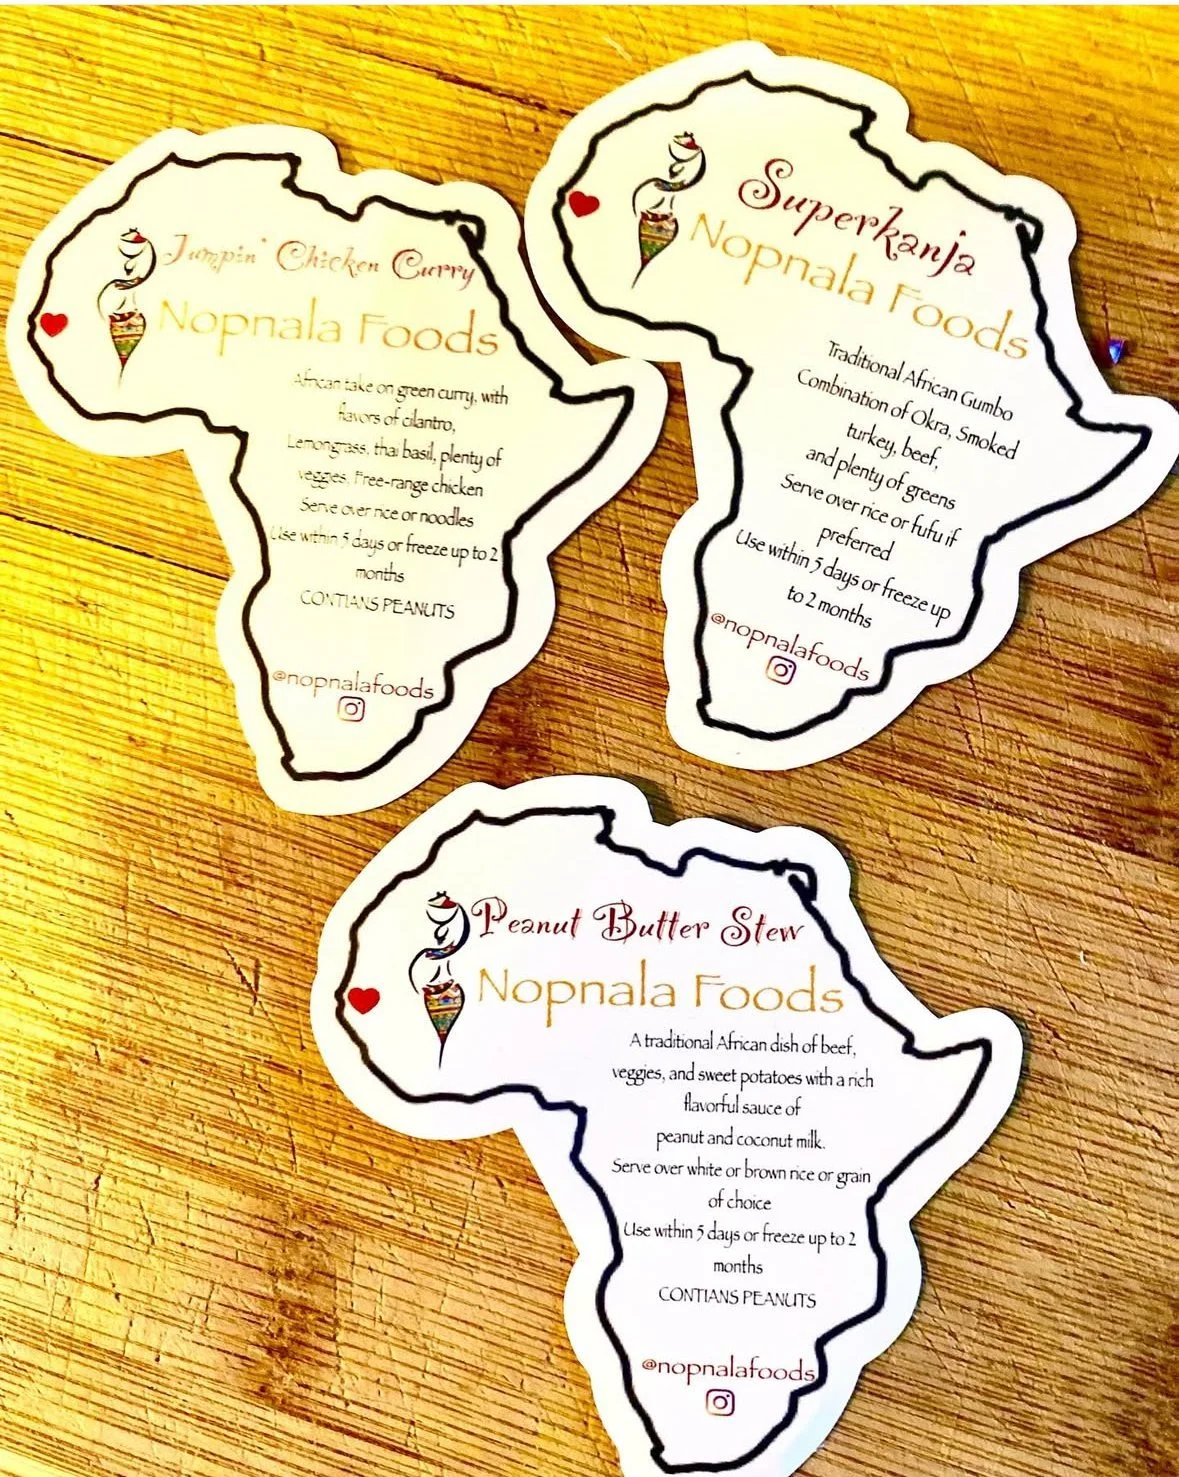 Jumpin' Chicken Curry
Nopnala Foods
African take on green curry, with
flavors of cilantro,
Lemongrass, thai basil, plenty of
veggies. Free-range chicken
Serve over rice or noodles
Use within 5 days or freeze up to 2
months
CONTIANS PEANUTS
@nopnalafoods
Superkanja
Nopnala Foods
Traditional African Gumbo
Combination of Okra, Smoked
turkey, beef,
and plenty of greens
Serve over rice or fufu if
preferred
Use within 5 days or freeze up
to 2 months
@nopnalafoods
Peanut Butter Stew
Nopnala Foods
A traditional African dish of beef,
veggies, and sweet potatoes with a rich
flavorful sauce of
peanut and coconut milk.
Serve over white or brown rice or grain
of choice
Use within 5 days or freeze up to 2
months
CONTIANS PEANUTS
@nopnalafoods